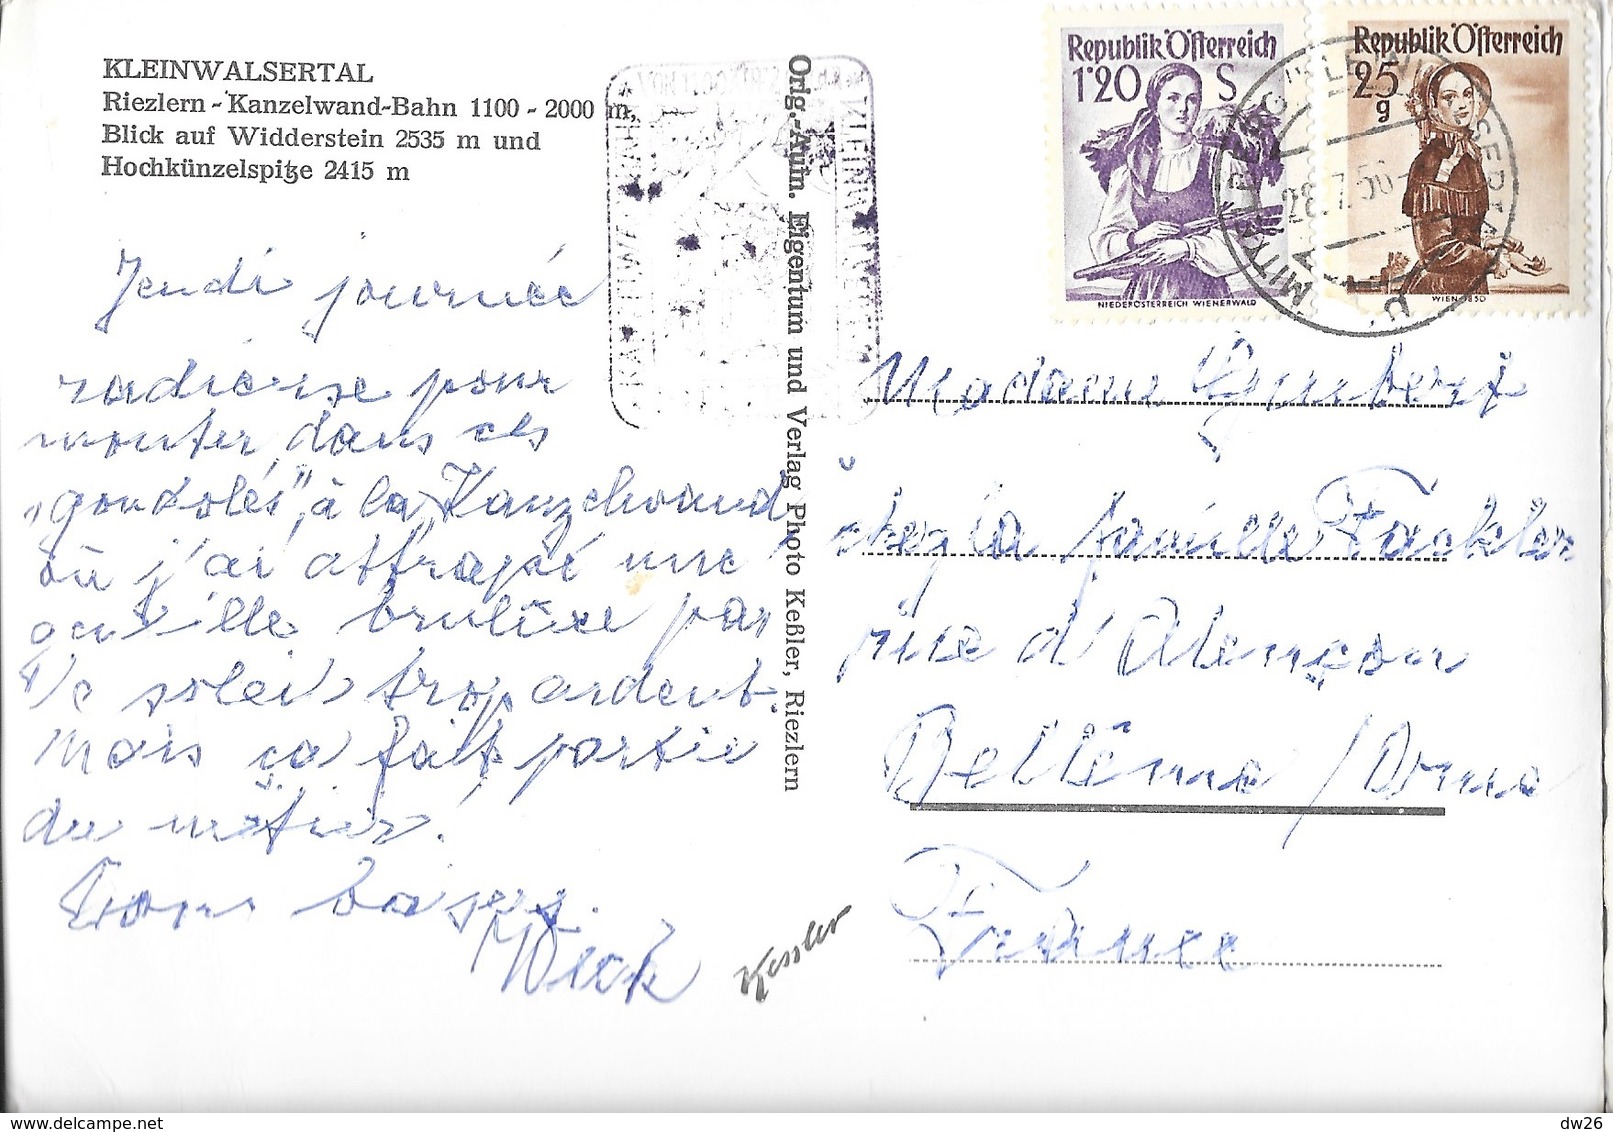 KLEINWALSERTAL
Riezlern - Kanzelwand-Bahn 1100 - 2000 m,
Blick auf Widderstein 2535 m und
Hochkünzelspitze 2415 m
Jeudi journée
radieuse pour
monter dans ces
„gondoles", à la Kanzelwand
où j'ai attrapé une
brulûre par
le soleil trop ardent.
Mais ça fait partie
du métier.
Bons baisers.
Kessler
Orig.-Aufn. Eigentum und Verlag Photo Keßler, Riezlern
Republik Österreich
1'20 S
NIEDERÖSTERREICH WIENERWALD
Republik Österreich
25 g
WIEN 1850
28.7.56
Madame
chez la famille Fackler
rue d'Alençon
Bellême / Orne
France
delcampe.net
dw26